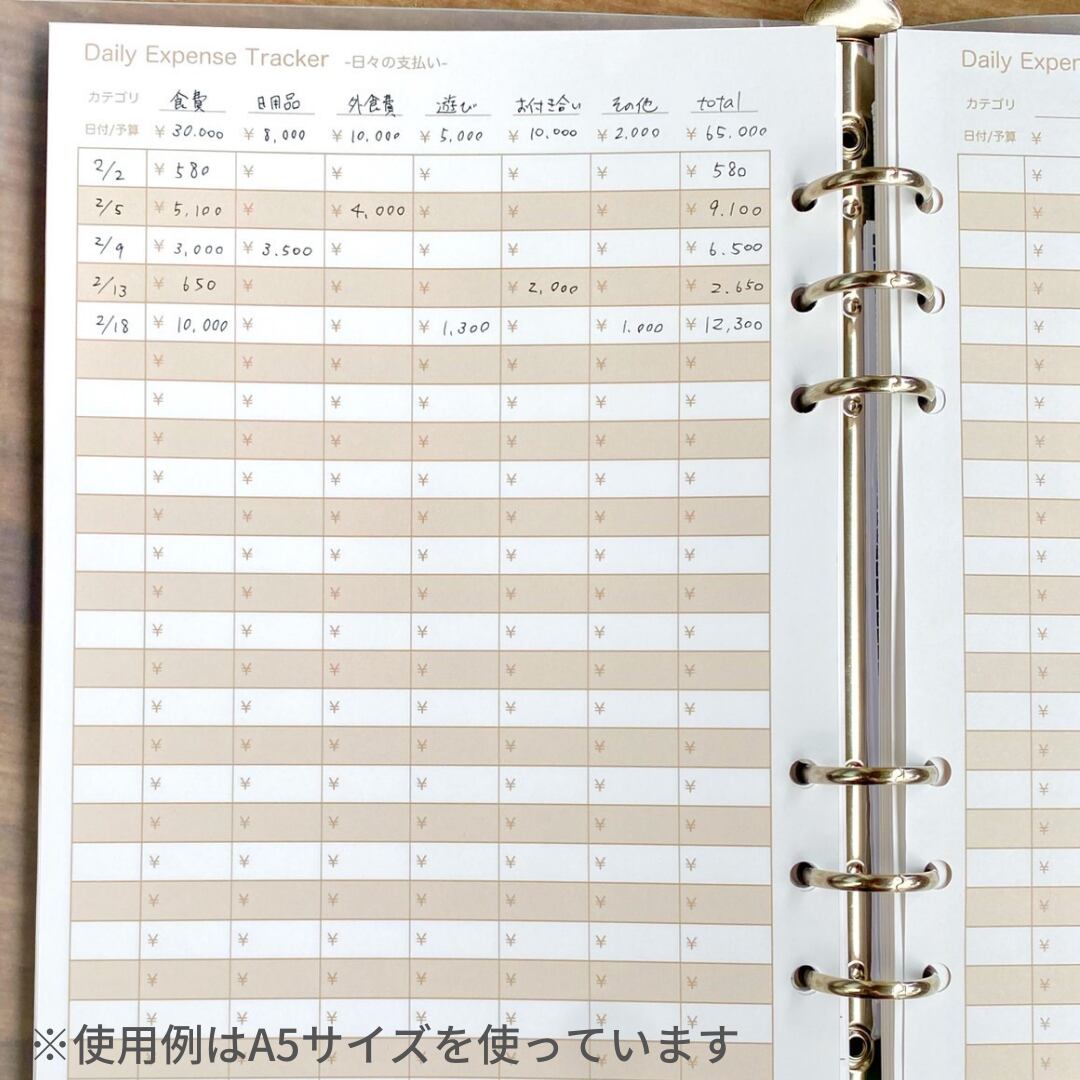 Daily Expense Tracker -日々の支払い-
カテゴリ 食費 日用品 外食費 遊び お付き合い その他 total
日付/予算 ¥ 30.000 ¥ 8,000 ¥ 10,000 ¥ 5,000 ¥ 10.000 ¥ 2.000 ¥ 65,000
2/2 ¥ 580 ¥ ¥ ¥ ¥ ¥ ¥ 580
2/5 ¥ 5,100 ¥ ¥ 4,000 ¥ ¥ ¥ ¥ 9.100
2/9 ¥ 3,000 ¥ 3.500 ¥ ¥ ¥ ¥ ¥ 6.500
2/13 ¥ 650 ¥ ¥ ¥ ¥ 2,000 ¥ ¥ 2.650
2/18 ¥ 10,000 ¥ ¥ ¥ 1,300 ¥ ¥ 1.000 ¥ 12,300
¥ ¥ ¥ ¥ ¥ ¥ ¥
¥ ¥ ¥ ¥ ¥ ¥ ¥
¥ ¥ ¥ ¥ ¥ ¥ ¥
¥ ¥ ¥ ¥ ¥ ¥ ¥
¥ ¥ ¥ ¥ ¥ ¥ ¥
¥ ¥ ¥ ¥ ¥ ¥ ¥
¥ ¥ ¥ ¥ ¥ ¥ ¥
¥ ¥ ¥ ¥ ¥ ¥ ¥
¥ ¥ ¥ ¥ ¥ ¥ ¥
¥ ¥ ¥ ¥ ¥ ¥ ¥
¥ ¥ ¥ ¥ ¥ ¥ ¥
¥ ¥ ¥ ¥ ¥ ¥ ¥
¥ ¥ ¥ ¥ ¥ ¥ ¥
¥ ¥ ¥ ¥ ¥ ¥ ¥
¥ ¥ ¥ ¥ ¥ ¥ ¥
¥ ¥ ¥ ¥ ¥ ¥ ¥
¥ ¥ ¥ ¥ ¥ ¥ ¥
Daily Expen
カテゴリ
日付/予算 ¥
¥
¥
¥
¥
¥
¥
¥
¥
¥
¥
¥
¥
¥
¥
¥
¥
¥
¥
¥
¥
¥
¥
¥
※使用例はA5サイズを使っています